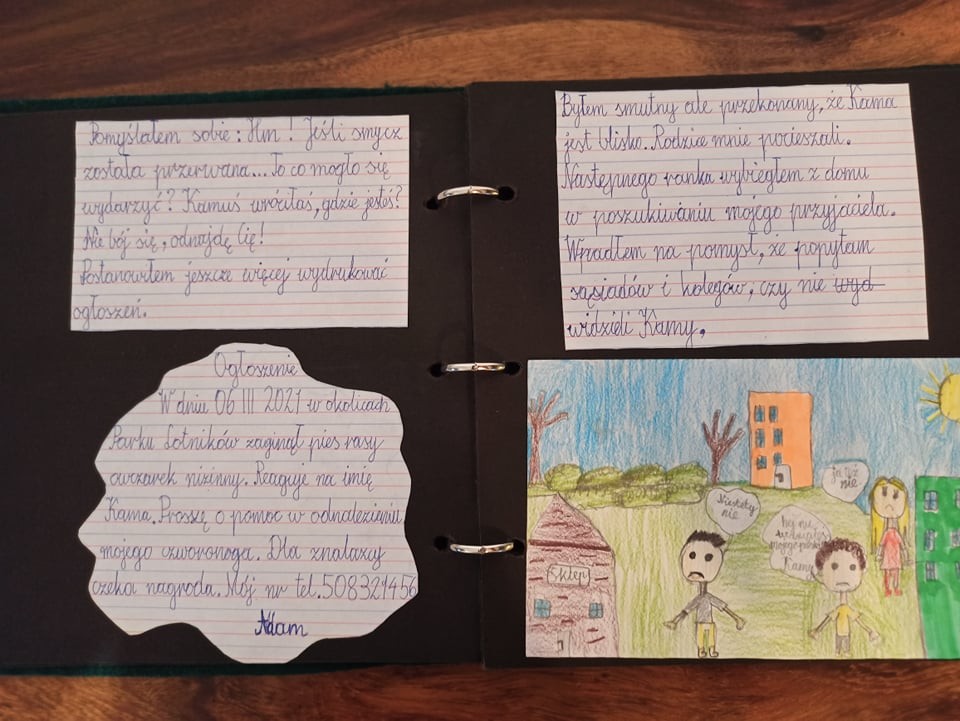 Pomyślałem sobie: Hm! Jeśli smycz
została przerwana... To co mogło się
wydarzyć? Kamuś wróciłaś, gdzie jesteś?
Nie bój się, odnajdę Cię!
Postanowiłem jeszcze więcej wydrukować
ogłoszeń.
Ogłoszenie
W dniu 06 III 2021 w okolicach
Parku Lotników zaginął pies rasy
owczarek nizinny. Reaguje na imię
Kama. Proszę o pomoc w odnalezieniu
mojego czworonoga. Dla znalazcy
czeka nagroda. Mój nr tel. 508321456
Adam
Byłem smutny ale przekonany, że Kama
jest blisko. Rodzice mnie pocieszali.
Następnego ranka wybiegłem z domu
w poszukiwaniu mojego przyjaciela.
Wpadłem na pomysł, że popytam
sąsiadów i kolegów, czy nie wyd
widzieli Kamy.
ja też
nie
Niestety
nie
Hej nie
mojego pieska
Kamy
Sklep